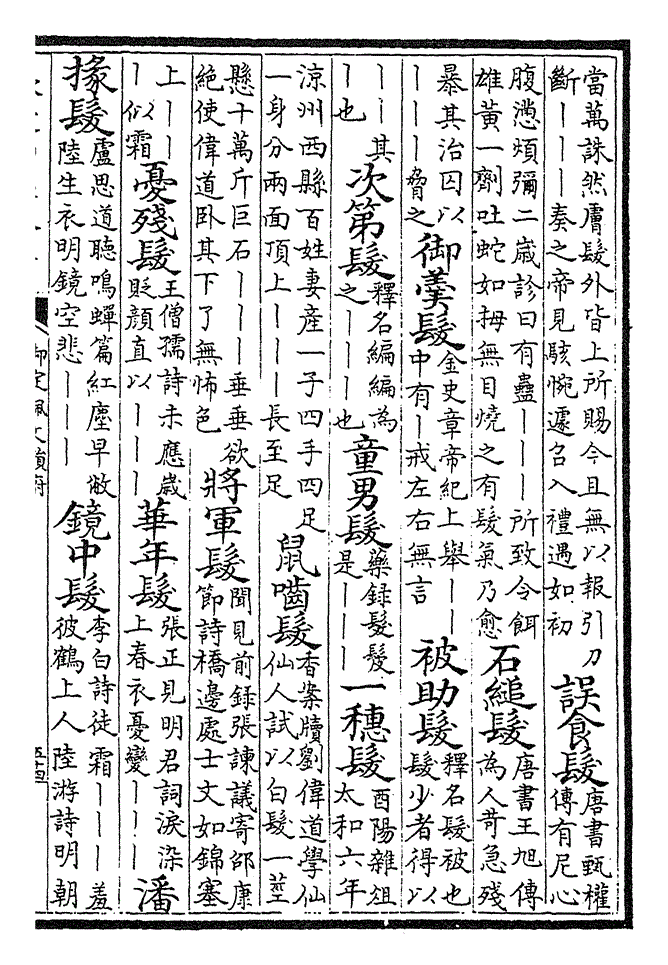 當萬誅然膚髮外皆上所賜今且無以報引刀
斷丨丨丨奏之帝見駭惋遽召入禮遇如初
誤食髮
唐書甄權
傳有尼心
腹懣煩彌二歲診曰有蠱丨丨丨所致令餌
雄黃一劑吐蛇如拇無目燒之有髮氣乃愈
石縋髮
唐書王旭傳
為人苛急殘
暴其治囚以
丨丨丨脅之
御羹髮
金史章帝紀上舉丨丨
中有丨戒左右無言
被助髮
釋名髮被也
髮少者得以
丨丨其
丨也
次第髮
釋名編編為
之丨丨丨也
童男髮
藥錄髮髲
是丨丨丨
一穗髮
酉陽雜俎
太和六年
涼州西縣百姓妻產一子四手四足
一身分兩面頂上丨丨丨長至足
鼠嚙髮
香案牘劉偉道學仙
仙人試以白髮一莖
懸十萬斤巨石丨丨丨垂垂欲
絕使偉道臥其下了無怖色
將軍髮
聞見前錄張諫議寄邵康
節詩橋邊處士文如錦塞
上丨丨
丨似霜
憂殘髮
王僧孺詩未應歲
貶顏直以丨丨丨
華年髮
張正見明君詞淚染
上春衣憂變丨丨丨
潘
掾髮
盧思道聽鳴蟬篇紅塵早敝
陸生衣明鏡空悲丨丨丨
鏡中髮
李白詩徒霜丨丨丨羞
彼鶴上人陸游詩明朝
御定佩文韻府
五十四